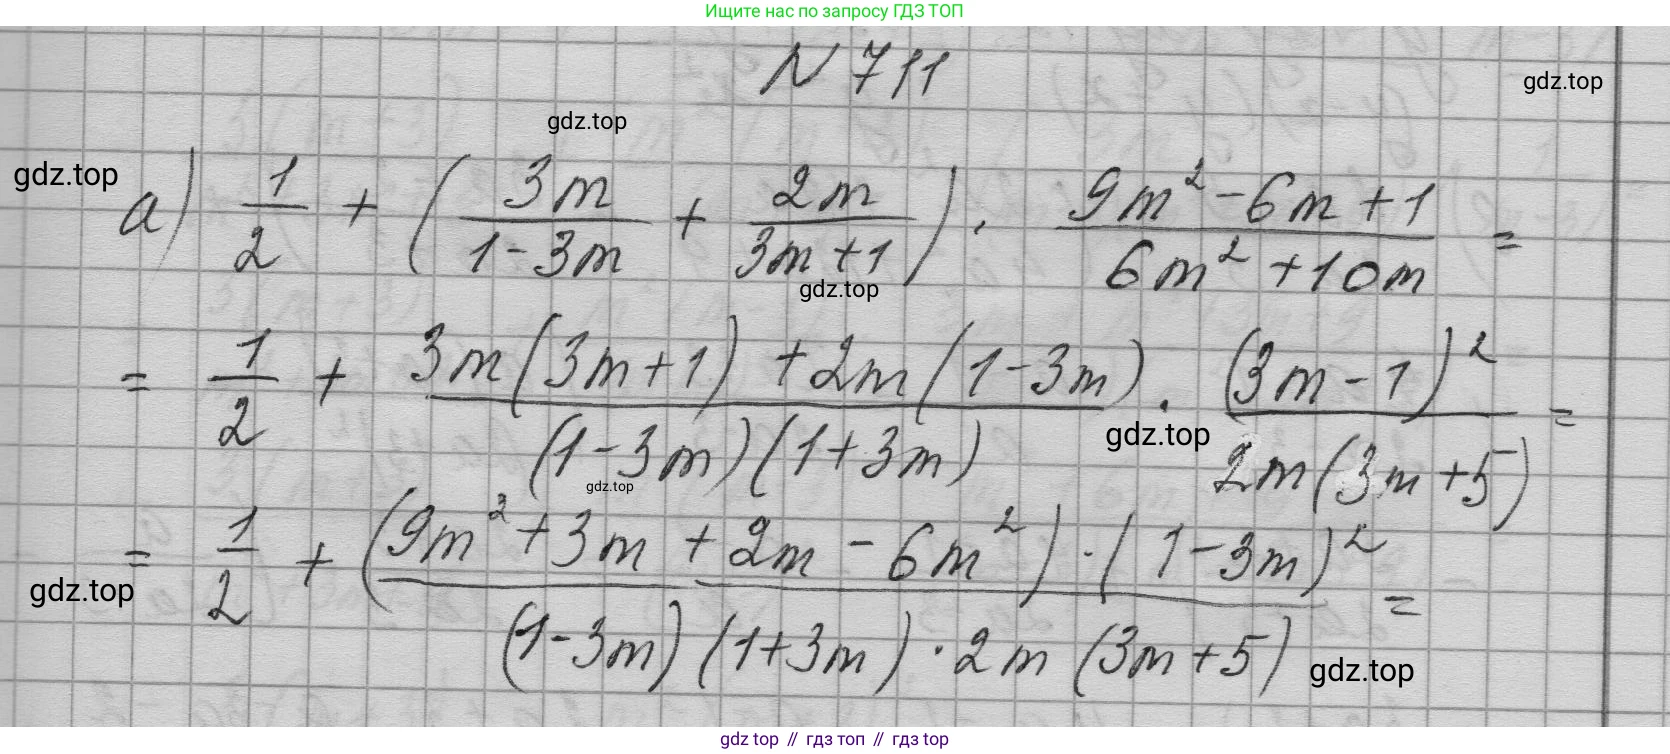 Ищите нас по запросу ГДЗ ТОП
N 711
gdz.top
gdz.top
gdz.top
а) 1/2 + (3m/(1-3m) + 2m/(3m+1)) · (9m²-6m+1)/(6m²+10m) =
gdz.top
= 1/2 + (3m(3m+1)+2m(1-3m))/((1-3m)(1+3m)) · (3m-1)²/(2m(3m+5)) =
gdz.top
gdz.top
= 1/2 + ((9m²+3m+2m-6m²)·(1-3m)²)/((1-3m)(1+3m)·2m(3m+5)) =
gdz.top
gdz.top
gdz top // гдз топ // гдз top